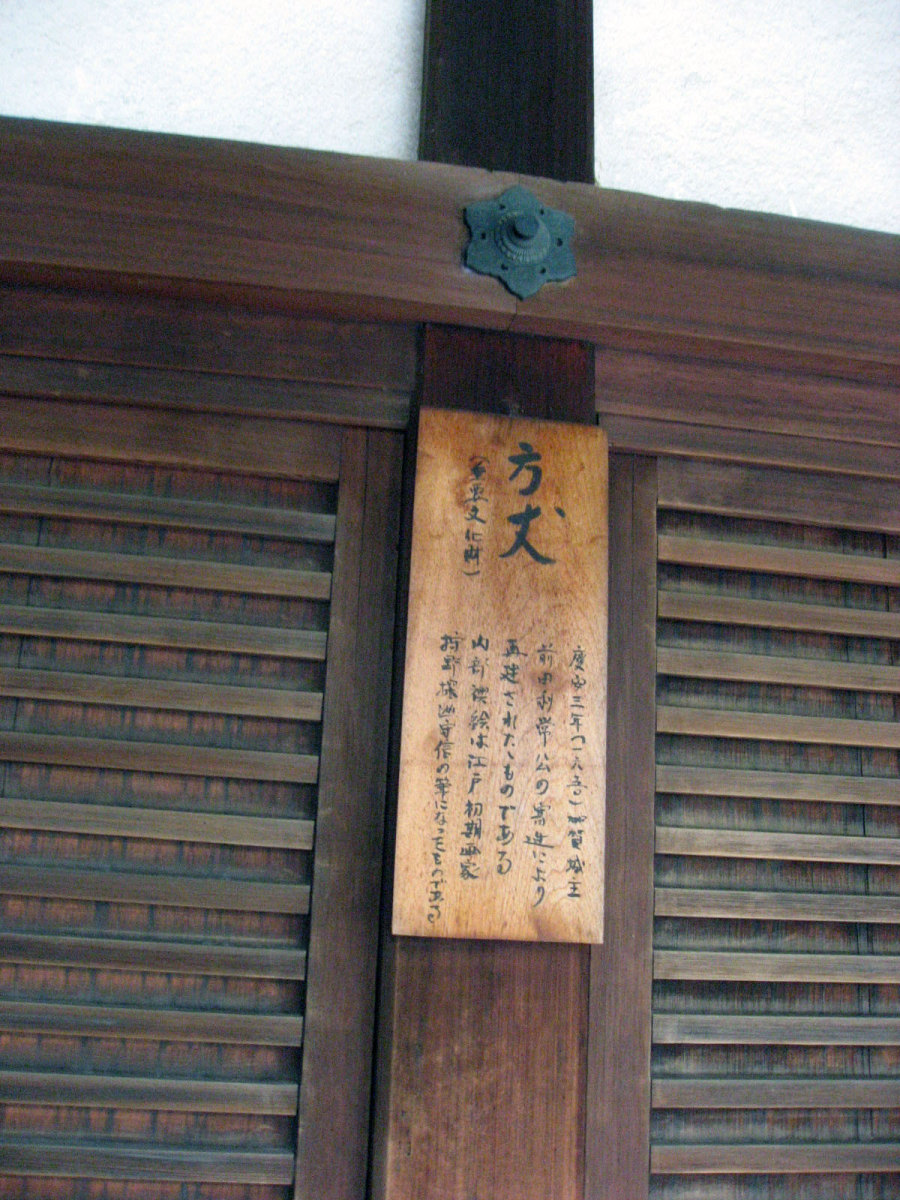 方丈
(重要文化財)
慶安三年(一六五〇)加賀城主
前田利常公の寄進により
再建されたものである
内部襖絵は江戸初期画家
狩野探幽守信の筆になったものである